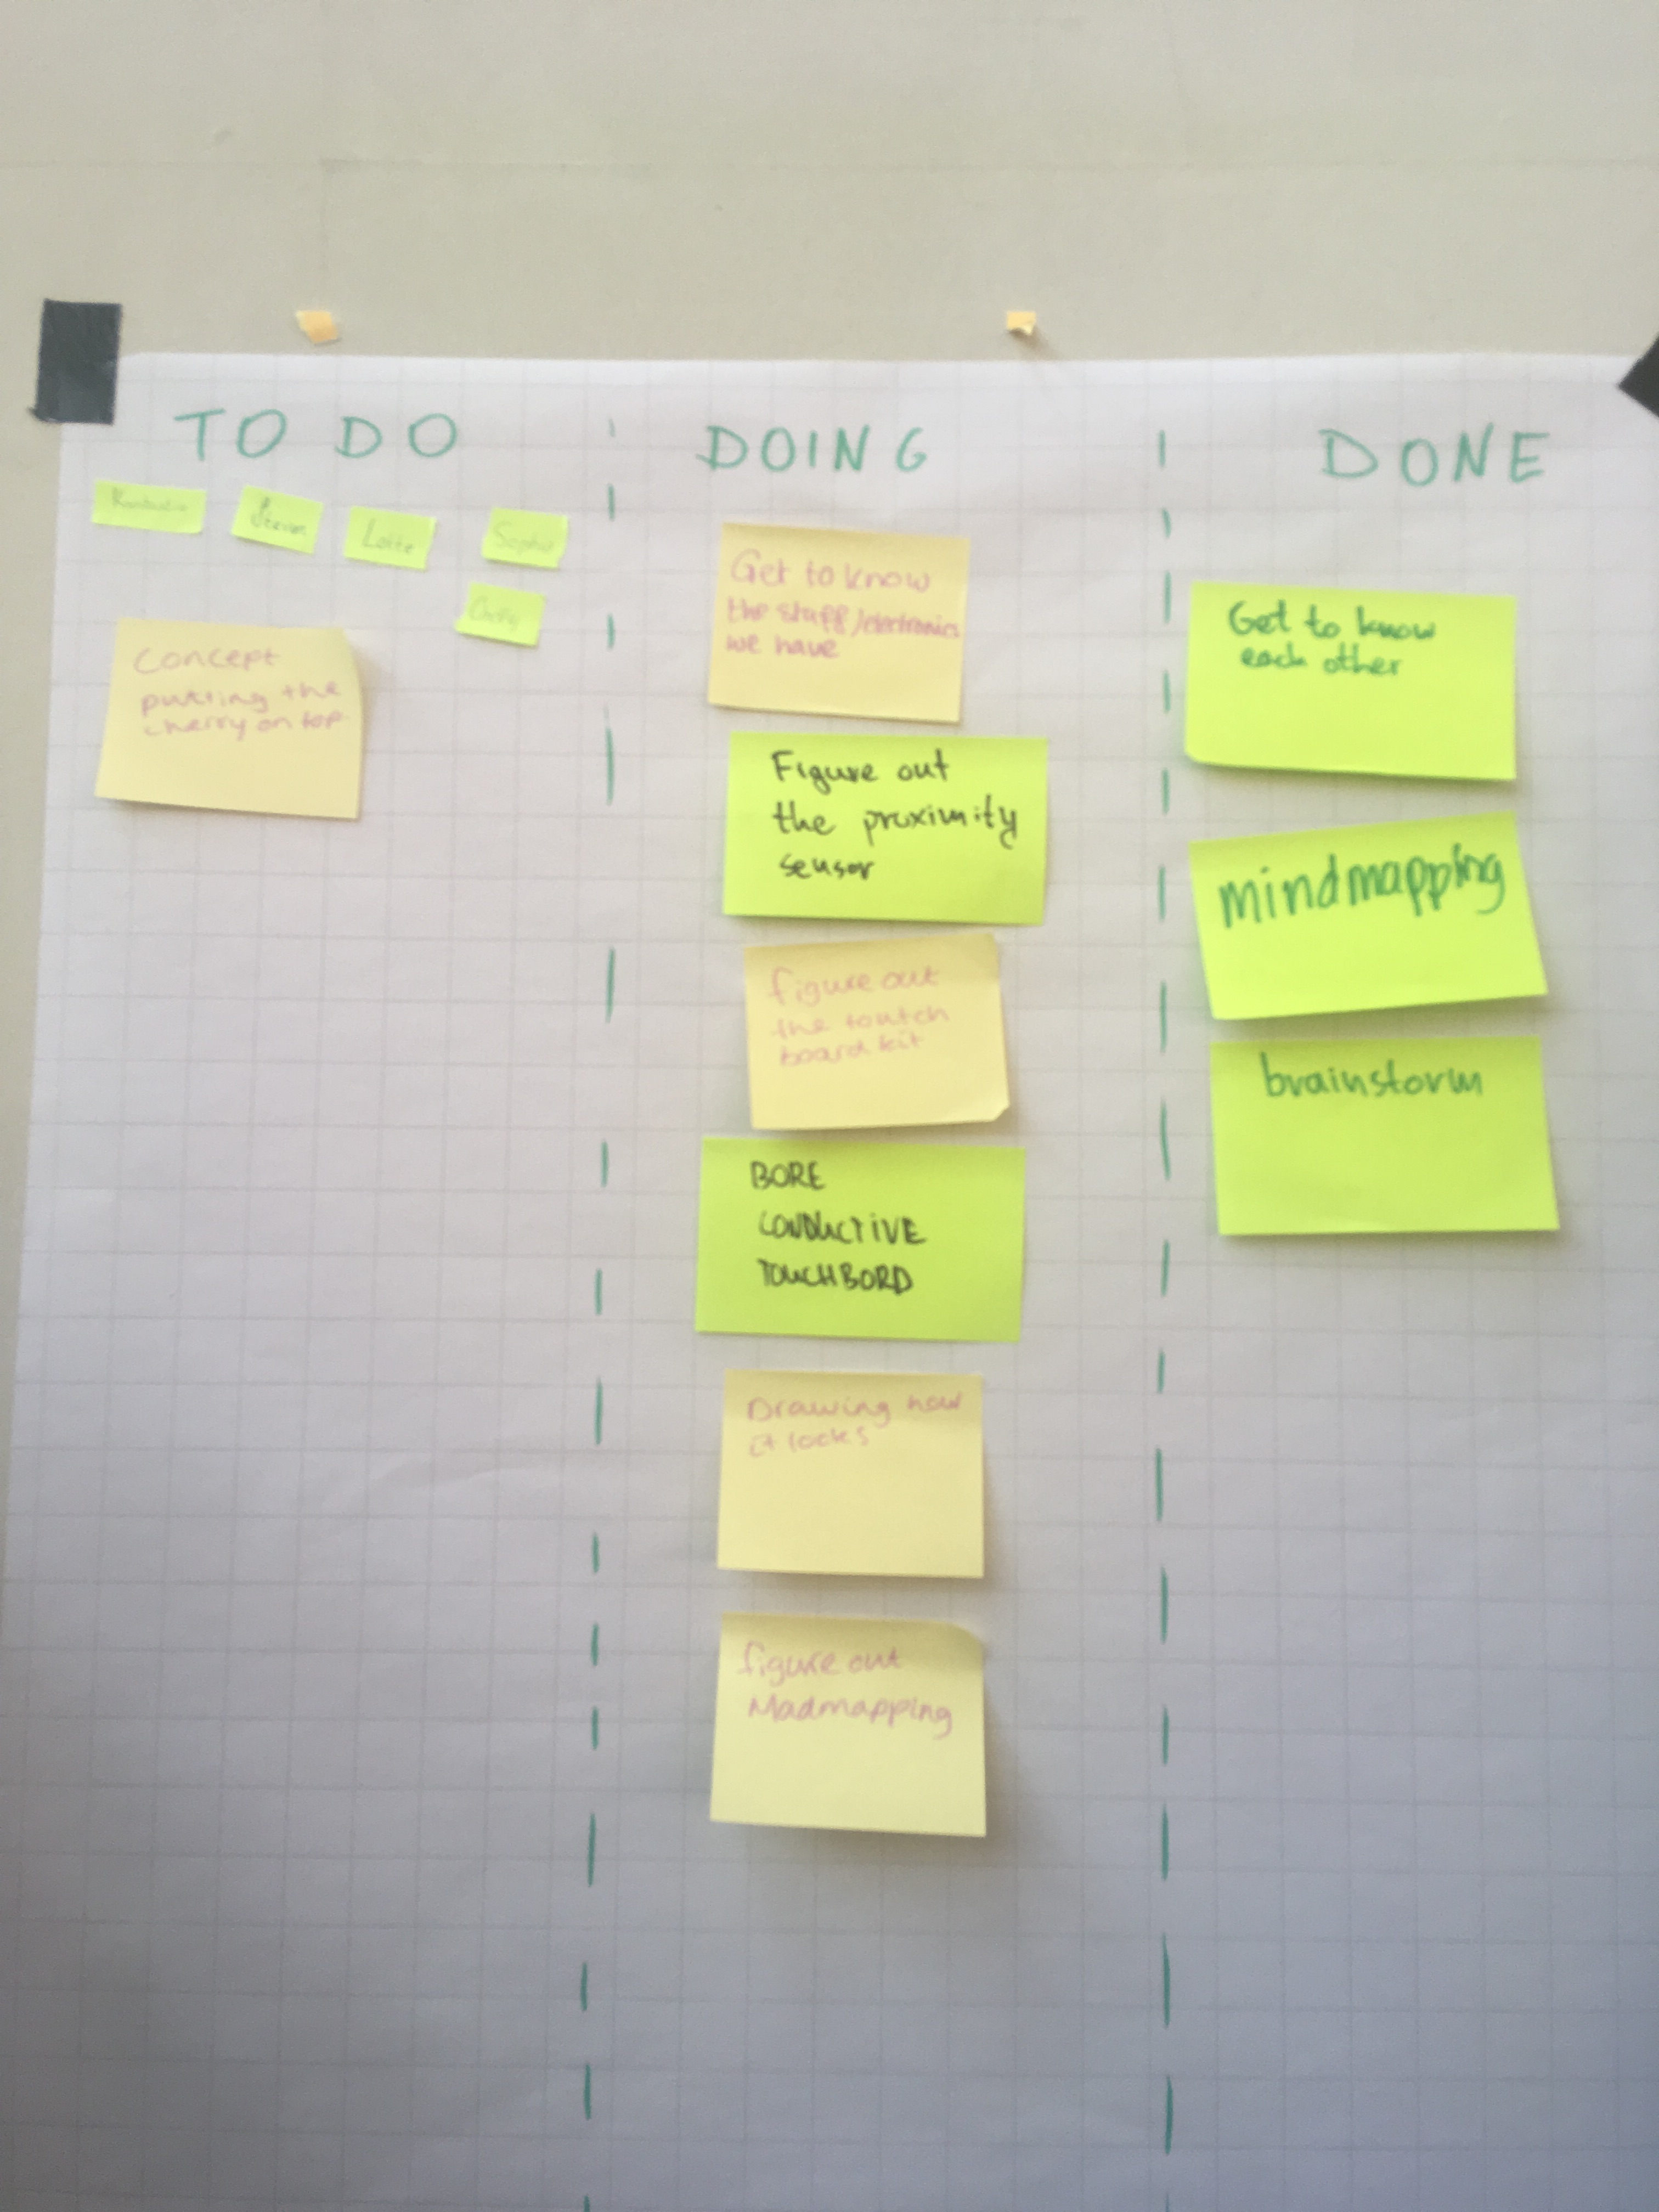 TO DO
Lotte
Sophie
Concept
putting the
cherry on top
DOING
Get to know
the stuff/electronics
we have
Figure out
the proximity
sensor
figure out
the toutch
board kit
BORE
CONDUCTIVE
TOUCHBORD
Drawing how
it looks
figure out
Madmapping
DONE
Get to know
each other
mindmapping
brainstorm